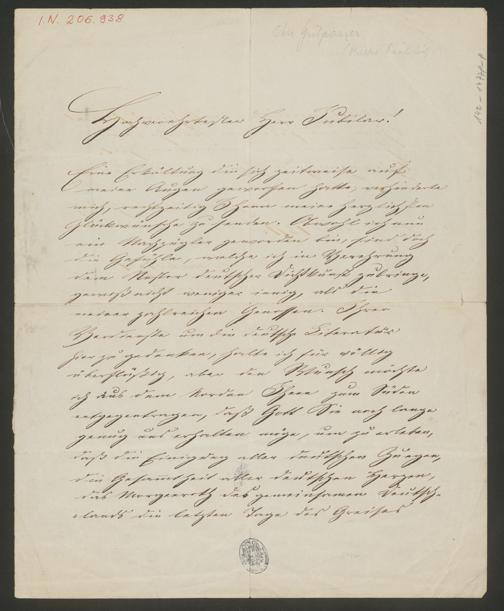 I.N. 206.938
Hochverehrtester Herr Jubilar!
Eine Erkältung die sich zeitweise auf
meine Augen geworfen hatte, verhinderte
mich, rechtzeitig Ihnen meine herzlichsten
Glückwünsche zu senden. Obwohl ich nun
ein Nachzügler geworden bin, sind doch
die Gefühle, welche ich in Verehrung
dem Meister deutscher Dichtkunst zubringe,
gewiß nicht weniger innig, als die
meiner zahlreichen Genossen. Ihrer
Verdienste um die deutsche Literatur
hier zu gedenken, halte ich für völlig
überflüssig, aber den Wunsch möchte
ich aus dem Norden Ihnen zum Süden
entgegentragen, daß Gott Sie noch lange
genug uns erhalten möge, um zu erleben,
daß die Einigung aller deutschen Zungen,
die Gesamtheit aller deutschen Herzen,
das Morgenroth des gemeinsamen Deutsch-
lands die letzten Tage des Greises